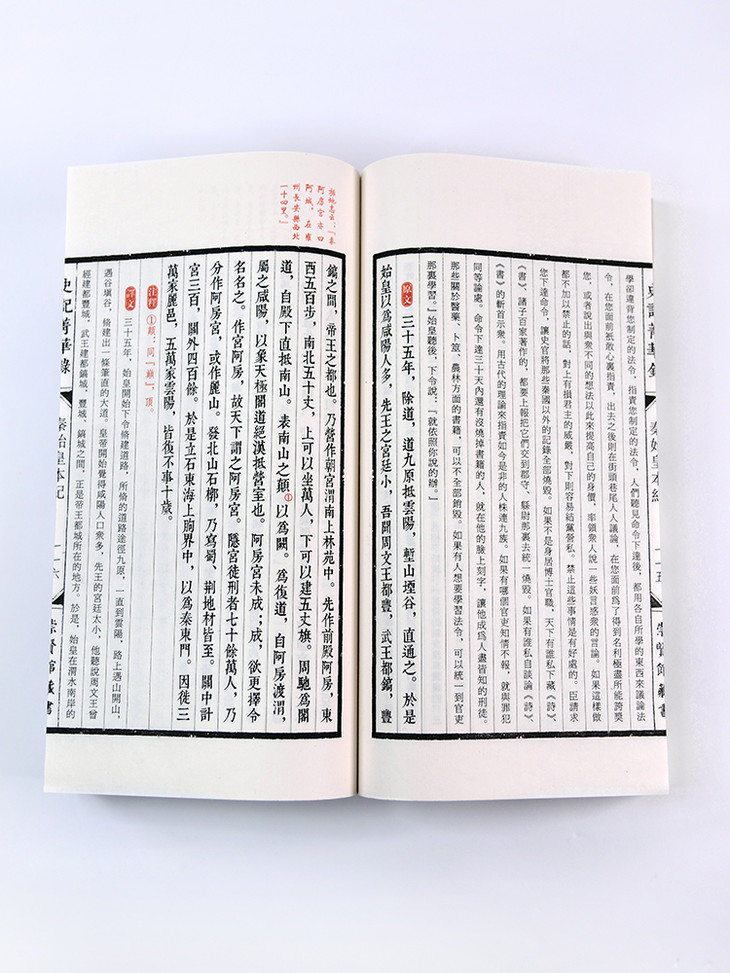 學卻違背您制定的法令，指責您制定的法令，人們聽見命令下達後，都用各自所學的東西來議論法
令，在您面前祇敢心裏指責，出去之後則在街頭巷尾人人議論，在您面前爲了得到名利極盡所能誇獎
您，或者說出與衆不同的想法以此來提高自己的身價，率領衆人說一些妖言惑衆的言論。如果這樣做
都不加以禁止的話，對上有損君主的威嚴，對下則容易結黨營私。禁止這些事情是有好處的。臣請求
您下達命令，讓史官將那些秦國以外的記錄全部燒毀。如果不是身居博士官職，天下有誰私下藏《詩》
《書》、諸子百家著作的，都要上報把它們交到郡守、縣尉那裏去統一燒毀。如果有誰私自談論《詩》
《書》的斬首示衆。用古代的理論來指責如今是非的人株連九族。如果有哪個官吏知情不報，就與罪犯
同等論處。命令下達三十天內還有沒燒掉書籍的人，就在他的臉上刻字，讓他成爲人盡皆知的刑徒。
那些關於醫藥、卜筮、農林方面的書籍，可以不全部銷毀。如果有人想要學習法令，可以統一到官吏
那裏學習。」始皇聽後，下令說：「就依照你說的辦。」
原文 三十五年，除道，道九原抵雲陽，塹山堙谷，直通之。於是
始皇以爲咸陽人多，先王之宮廷小，吾聞周文王都豐，武王都鎬，豐
史記菁華錄 秦始皇本紀 一五 崇賢館藏書
括地志云：「秦
阿房宮亦曰
阿城，在雍
州長安縣西北
一十四里。」
鎬之間，帝王之都也。乃營作朝宮渭南上林苑中。先作前殿阿房，東
西五百步，南北五十丈，上可以坐萬人，下可以建五丈旗。周馳爲閣
道，自殿下直抵南山。表南山之顛①以爲闕。爲復道，自阿房渡渭，
屬之咸陽，以象天極閣道絕漢抵營室也。阿房宮未成；成，欲更擇令
名名之。作宮阿房，故天下謂之阿房宮。隱宮徒刑者七十餘萬人，乃
分作阿房宮，或作麗山。發北山石槨，乃寫蜀、荆地材皆至。關中計
宮三百，關外四百餘。於是立石東海上朐界中，以爲秦東門。因徙三
萬家麗邑，五萬家雲陽，皆復不事十歲。
注釋 ①顛：同「巔」，頂。
譯文 三十五年，始皇開始下令脩建道路，所脩的道路途徑九原，一直到雲陽，路上遇山開山，
遇谷塡谷，脩建出一條筆直的大道。皇帝開始覺得咸陽人口衆多，先王的宮廷太小，他聽說周文王曾
經建都豐城，武王建都鎬城，豐城、鎬城之間，正是帝王都城所在的地方。於是，始皇在渭水南岸的
史記菁華錄 秦始皇本紀 一六 崇賢館藏書